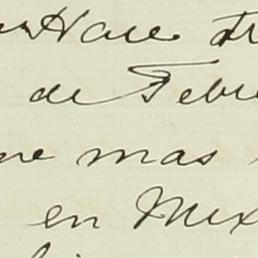 Hace
de Febre
ne mas
en Mex